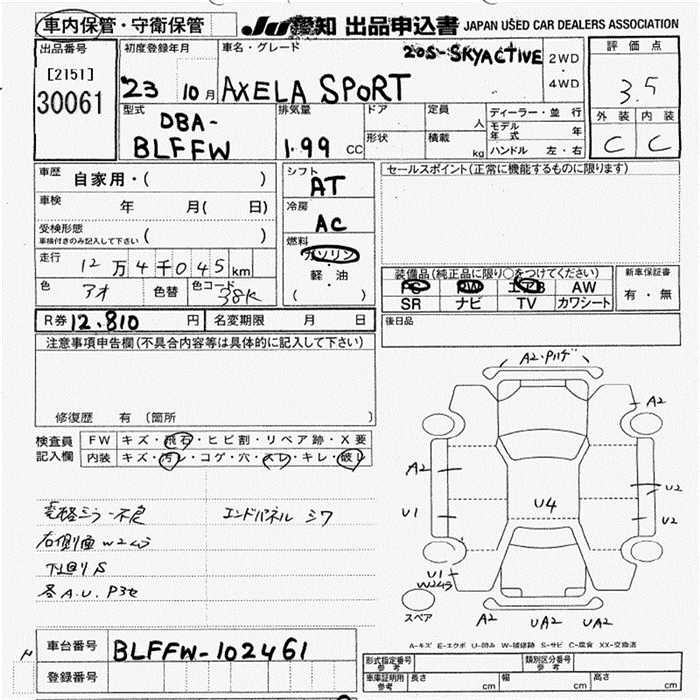 車内保管・守衛保管 JU愛知 出品申込書 JAPAN USED CAR DEALERS ASSOCIATION
出品番号 初度登録年月 車名・グレード 20S-SKYACTIVE 2WD 評価点
[2151] ・
30061 '23 10月 AXELA SPORT 4WD 3.5
型式 排気量 ドア 定員 ディーラー・並行 外装 内装
DBA- 人 モデル年式 年 C C
BLFFW 1.99 CC 形状 積載 kg ハンドル 左・右
車歴 自家用・( ) シフト セールスポイント(正常に機能するものに限ります)
AT
車検 年 月( 日) 冷房
AC
受検形態 ( )
車検付きのみ記入して下さい
燃料
ガソリン
走行 12万4千045km 軽・油 装備品(純正品に限り○をつけてください) 新車保証書
PS PW エアB AW 有・無
色 アオ 色替 色コード 38K ( ) SR ナビ TV カワシート
R券 12.810 円 名変期限 月 日 後日品
注意事項申告欄(不具合内容等は具体的に記入して下さい)
修復歴 有 〔箇所
検査員 FW キズ・飛石・ヒビ割・リペア跡・X要
記入欄 内装 キズ・汚レ・コゲ・穴・スレ・キレ・破レ
A2・ハゲ
A2
A2
U2
U1 U4 U2
U1
W24ラ
スペア
A2 UA2 UA2
エンドパネル シワ
右側面W2ラ
下回りS
各A.U.P3セ
A-キズ E-エクボ U-凹み W-補修跡 S-サビ C-腐食 XX-交換済
車台番号 BLFFW-102461
登録番号
型式指定番号 参考 類別区分番号 参考
車庫証明用 参考 長さ cm 幅 cm 高さ cm